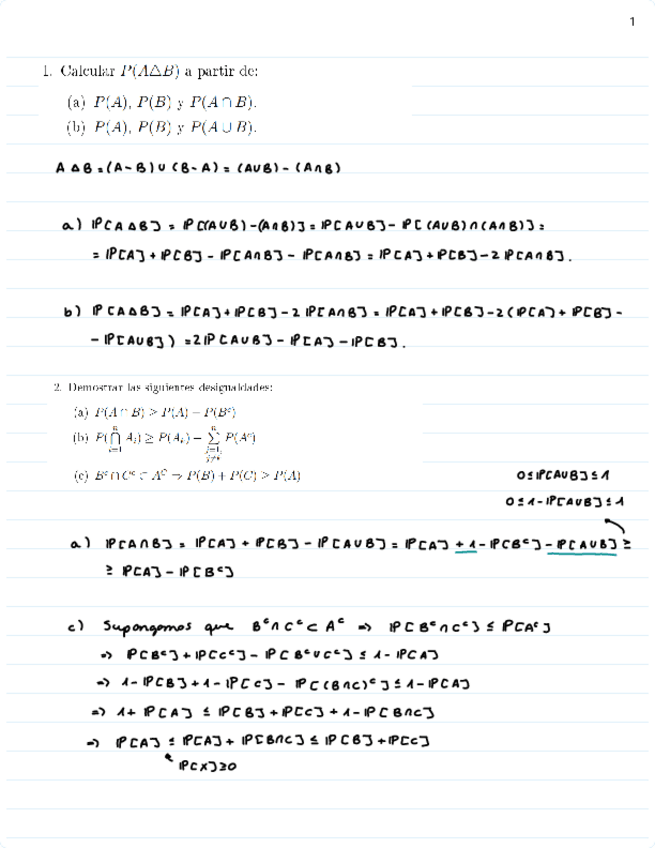 1
1. Calcular P(A△B) a partir de:
(a) P(A), P(B) y P(A ∩ B).
(b) P(A), P(B) y P(A ∪ B).
A △ B = (A - B) ∪ (B - A) = (A∪B) - (A∩B)
a) IP[A △ B] = IP[(A∪B) - (A∩B)] = IP[A∪B] - IP[(A∪B)∩(A∩B)] =
= IP[A] + IP[B] - IP[A∩B] - IP[A∩B] = IP[A] + IP[B] - 2 IP[A∩B].
b) IP[A△B] = IP[A] + IP[B] - 2 IP[A∩B] = IP[A] + IP[B] - 2 (IP[A] + IP[B] -
- IP[A∪B]) = 2IP[A∪B] - IP[A] - IP[B].
2. Demostrar las siguientes desigualdades:
(a) P(A ∩ B) ≥ P(A) − P(Bᶜ)
(b) P(⋂ⁿᵢ₌₁ Aᵢ) ≥ P(Aᵢ) − ∑ⁿⱼ₌₁, ⱼ≠ᵢ P(Aᶜ)
(c) Bᶜ ∩ Cᶜ ⊂ Aᶜ ⇒ P(B) + P(C) ≥ P(A)
0 ≤ IP[A∪B] ≤ 1
0 ≤ 1 - IP[A∪B] ≤ 1
a) IP[A∩B] = IP[A] + IP[B] - IP[A∪B] = IP[A] + 1 - IP[Bᶜ] - IP[A∪B] ≥
≥ IP[A] - IP[Bᶜ]
c) Supongamos que Bᶜ∩Cᶜ ⊂ Aᶜ => IP[Bᶜ∩Cᶜ] ≤ IP[Aᶜ]
=> IP[Bᶜ] + IP[Cᶜ] - IP[Bᶜ∪Cᶜ] ≤ 1 - IP[A]
=> 1 - IP[B] + 1 - IP[C] - IP[(B∩C)ᶜ] ≤ 1 - IP[A]
=> 1 + IP[A] ≤ IP[B] + IP[C] + 1 - IP[B∩C]
=> IP[A] ≤ IP[A] + IP[B∩C] ≤ IP[B] + IP[C]
IP[X] ≥ 0